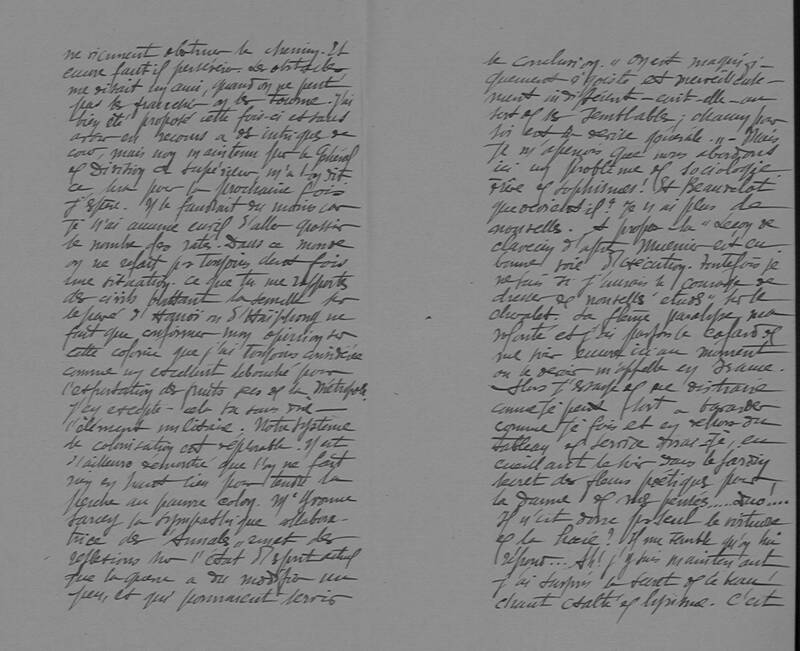 ne viennent obstruer le chemin. Et
encore faut-il persévérer. Les obstacles
me disait un ami, quand on ne peut
pas les franchir on les tourne. J'ai
bien été proposé cette fois-ci et sans
avoir eu recours à des intrigues de
cour, mais non maintenu par le Général
de Division. Le supérieur m'a-t-on dit
ce sera pour la prochaine fois
j'espère. Il le faudrait du moins car
je n'ai aucune envie d'aller grossir
le nombre des ratés. Dans ce monde
on ne refait pas toujours deux fois
une situation. Ce que tu me rapportes
des civils battant la semelle sur
le pavé d'Hanoï ou d'Haïphong ne
fait que confirmer mon opinion sur
cette colonie que j'ai toujours considérée
comme un excellent débouché pour
l'exportation des fruits secs de la Métropole
J'en excepte - cela va sans dire -
l'élément militaire. Notre système
de colonisation est déplorable. Il est
d'ailleurs démontré que l'on ne fait
rien en haut lieu pour tendre la
perche au pauvre colon. Me Yvonne
Sarcey la sympathique collabora-
trice des "Annales" émet des
réflexions sur l'état d'esprit actuel
que la guerre a dû modifier un
peu, et qui pourraient servir
de conclusion. "On est magnifi-
quement égoïste et merveilleuse-
ment indifférent - écrit-elle - au
sort de ses semblables ; chacun pour
soi est la devise générale." - Mais
je m'aperçois que nous abordons
ici un problème de sociologie
de sophismes ! Et Beauvelot
que devient-il ? Je n'ai plus de
nouvelles. A propos la "Leçon de
clavecin" d'après Muenier est en
bonne voie d'exécution. Toutefois je
ne sais si j'aurais le courage de
dresser de nouvelles "études" sur le
chevalet. La flemme paralyse ma
volonté et j'ai parfois le cafard de
me voir encore ici au moment
où le devoir m'appelle en France.
Alors j'essaye de me distraire
comme je peux tout à
comme je fais et en dehors du
tableau de service assujetti, en
cueillant le soir dans le jardin
secret des fleurs poétiques pour
la dame de mes pensées..... Duo !...
Il n'est donc pas seul le virtuose
de la ? Il me semble qu'on lui
répond... Ah ! j'y suis maintenant
j'ai surpris le secret de ce beau
chant exalté de lyrisme. C'est